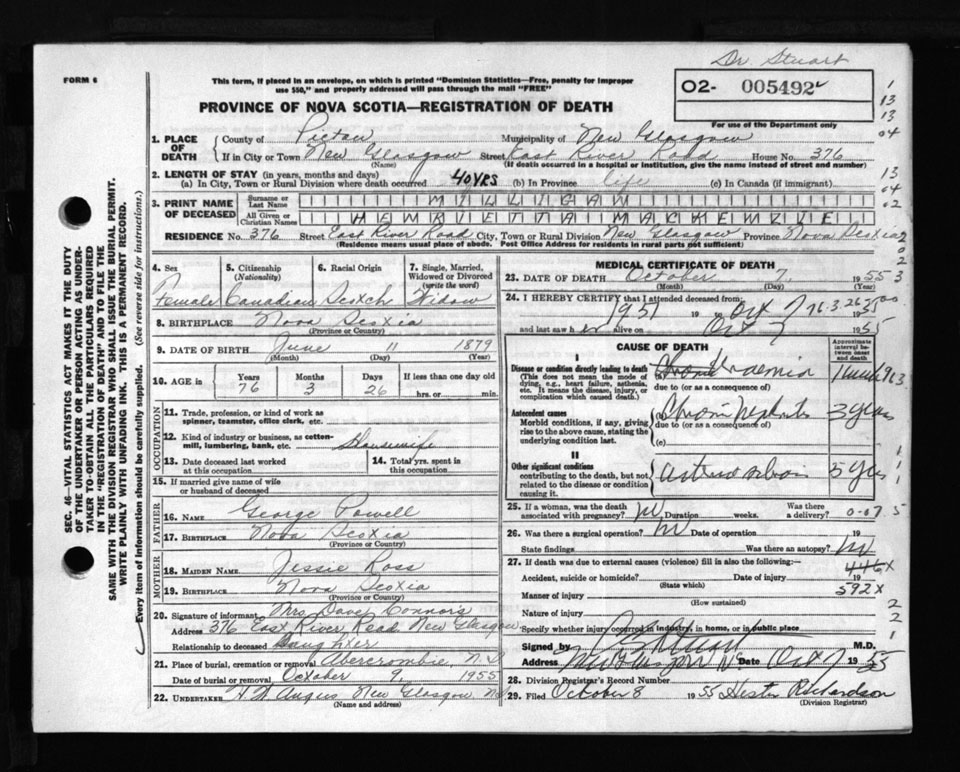 Dr. Stuart
FORM 6
This form, if placed in an envelope, on which is printed "Dominion Statistics—Free, penalty for improper
use $50," and properly addressed will pass through the mail "FREE"
O2- 005492
PROVINCE OF NOVA SCOTIA—REGISTRATION OF DEATH
For use of the Department only
1. PLACE OF DEATH
County of Pictou Municipality of New Glasgow
If in City or Town New Glasgow Street East River Road House No. 376
(Name) (If death occurred in a hospital or institution, give the name instead of street and number)
2. LENGTH OF STAY (in years, months and days)
(a) In City, Town or Rural Division where death occurred 40 YRS (b) In Province life (c) In Canada (if immigrant)
3. PRINT NAME OF DECEASED
Surname or Last Name MILLIGAN
All Given or Christian Names HENRIETTA MACKENZIE
RESIDENCE No. 376 Street East River Road City, Town or Rural Division New Glasgow Province Nova Scotia
(Residence means usual place of abode. Post Office Address for residents in rural parts not sufficient)
4. Sex Female
5. Citizenship (Nationality) Canadian
6. Racial Origin Scotch
7. Single, Married, Widowed or Divorced (write the word) Widow
8. BIRTHPLACE Nova Scotia
(Province or Country)
9. DATE OF BIRTH June 11 1879
(Month) (Day) (Year)
10. AGE in Years 76 Months 3 Days 26 If less than one day old hrs. or min.
OCCUPATION
11. Trade, profession, or kind of work as spinner, teamster, office clerk, etc.
12. Kind of industry or business, as cotton-mill, lumbering, bank, etc. Housewife
13. Date deceased last worked at this occupation
14. Total yrs. spent in this occupation
15. If married give name of wife or husband of deceased
FATHER
16. NAME George Powell
17. BIRTHPLACE Nova Scotia
(Province or Country)
MOTHER
18. MAIDEN NAME Jessie Ross
19. BIRTHPLACE Nova Scotia
(Province or Country)
20. Signature of informant Mrs Dave Connors
Address 376 East River Road New Glasgow
Relationship to deceased Daughter
21. Place of burial, cremation or removal Abercrombie, N.S.
Date of burial or removal October 9, 1955
22. UNDERTAKER H.W. Angus New Glasgow, N.S.
(Name and address)
MEDICAL CERTIFICATE OF DEATH
23. DATE OF DEATH October 7, 1955
(Month) (Day) (Year)
24. I HEREBY CERTIFY that I attended deceased from:
1951 19 to Oct 7 1955
76-3-26
and last saw her alive on Oct 7 1955
CAUSE OF DEATH
Approximate interval between onset and death
I
Disease or condition directly leading to death
(This does not mean the mode of dying, e.g., heart failure, asthenia, etc. It means the disease, injury, or complication which caused death.)
(a) Uraemia
due to (or as a consequence of)
Antecedent causes
Morbid conditions, if any, giving rise to the above cause, stating the underlying condition last.
(b) Chronic Nephritis 3 years
due to (or as a consequence of)
(c)
II
Other significant conditions
contributing to the death, but not related to the disease or condition causing it.
5 yrs
25. If a woman, was the death associated with pregnancy? Duration weeks. Was there a delivery?
26. Was there a surgical operation? Date of operation 19
State findings Was there an autopsy?
27. If death was due to external causes (violence) fill in also the following:
Accident, suicide or homicide? Date of injury 19
(State which)
446X
592X
Manner of injury
(How sustained)
Nature of injury
Specify whether injury occurred in industry, in home, or in public place
Signed by M.D.
Address New Glasgow NS Date Oct 7 1955
28. Division Registrar's Record Number
29. Filed October 8 1955 Hester Richardson
(Division Registrar)
SEC. 46—VITAL STATISTICS ACT MAKES IT THE DUTY
OF THE UNDERTAKER OR PERSON ACTING AS UNDER-
TAKER TO OBTAIN ALL THE PARTICULARS REQUIRED
IN THE "REGISTRATION OF DEATH" AND TO FILE THE
SAME WITH THE DIVISION REGISTRAR WHO SHALL ISSUE THE BURIAL PERMIT.
WRITE PLAINLY WITH UNFADING INK. THIS IS A PERMANENT RECORD.
Every item of Information should be carefully supplied. (See reverse side for instructions.)